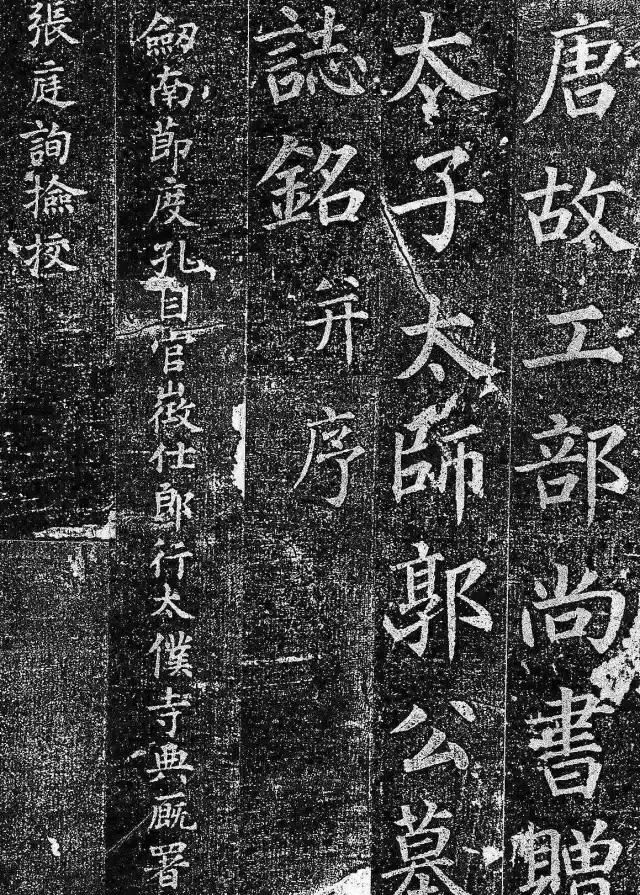 唐故工部尚書贈
太子太師郭公墓
誌銘并序
劔南節度孔目官徵仕郎行太僕寺典厩署
張庭詢撿挍